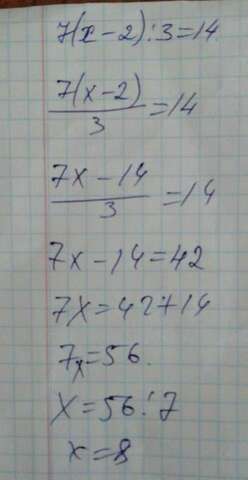 7(x-2):3=14
7(x-2)/3=14
7x-14/3=14
7x-14=42
7x=42+14
7x=56.
x=56:7
x=8